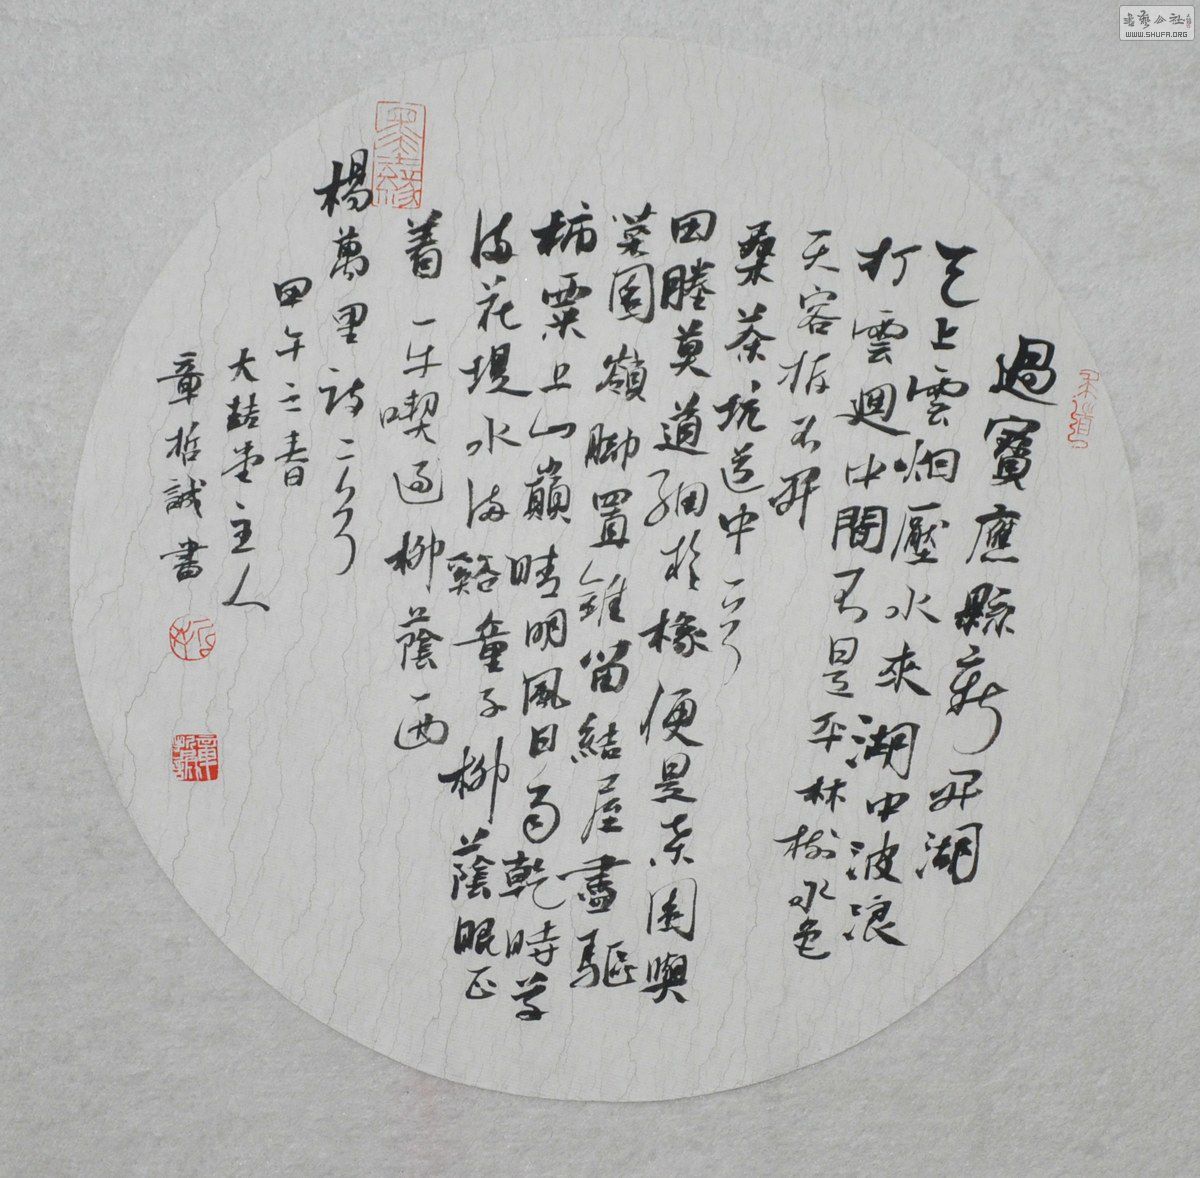 過寶應縣新开湖
天上雲烟壓水來湖中波浪
打雲迴中間不是平林樹水色
天容拆不开
桑茶坑道中二首
田塍莫道細於椽便是桑園與
菜園嶺脚置錐留結屋盡驅
柿栗上山巔晴明風日雨乾時草
滿花堤水滿谿童子柳蔭眠正
着一牛喫過柳蔭西
楊萬里詩二首
甲午之春
大喆堂主人
章哲誠書
墨緣
章哲誠
書藝公社
WWW.SHUFA.ORG